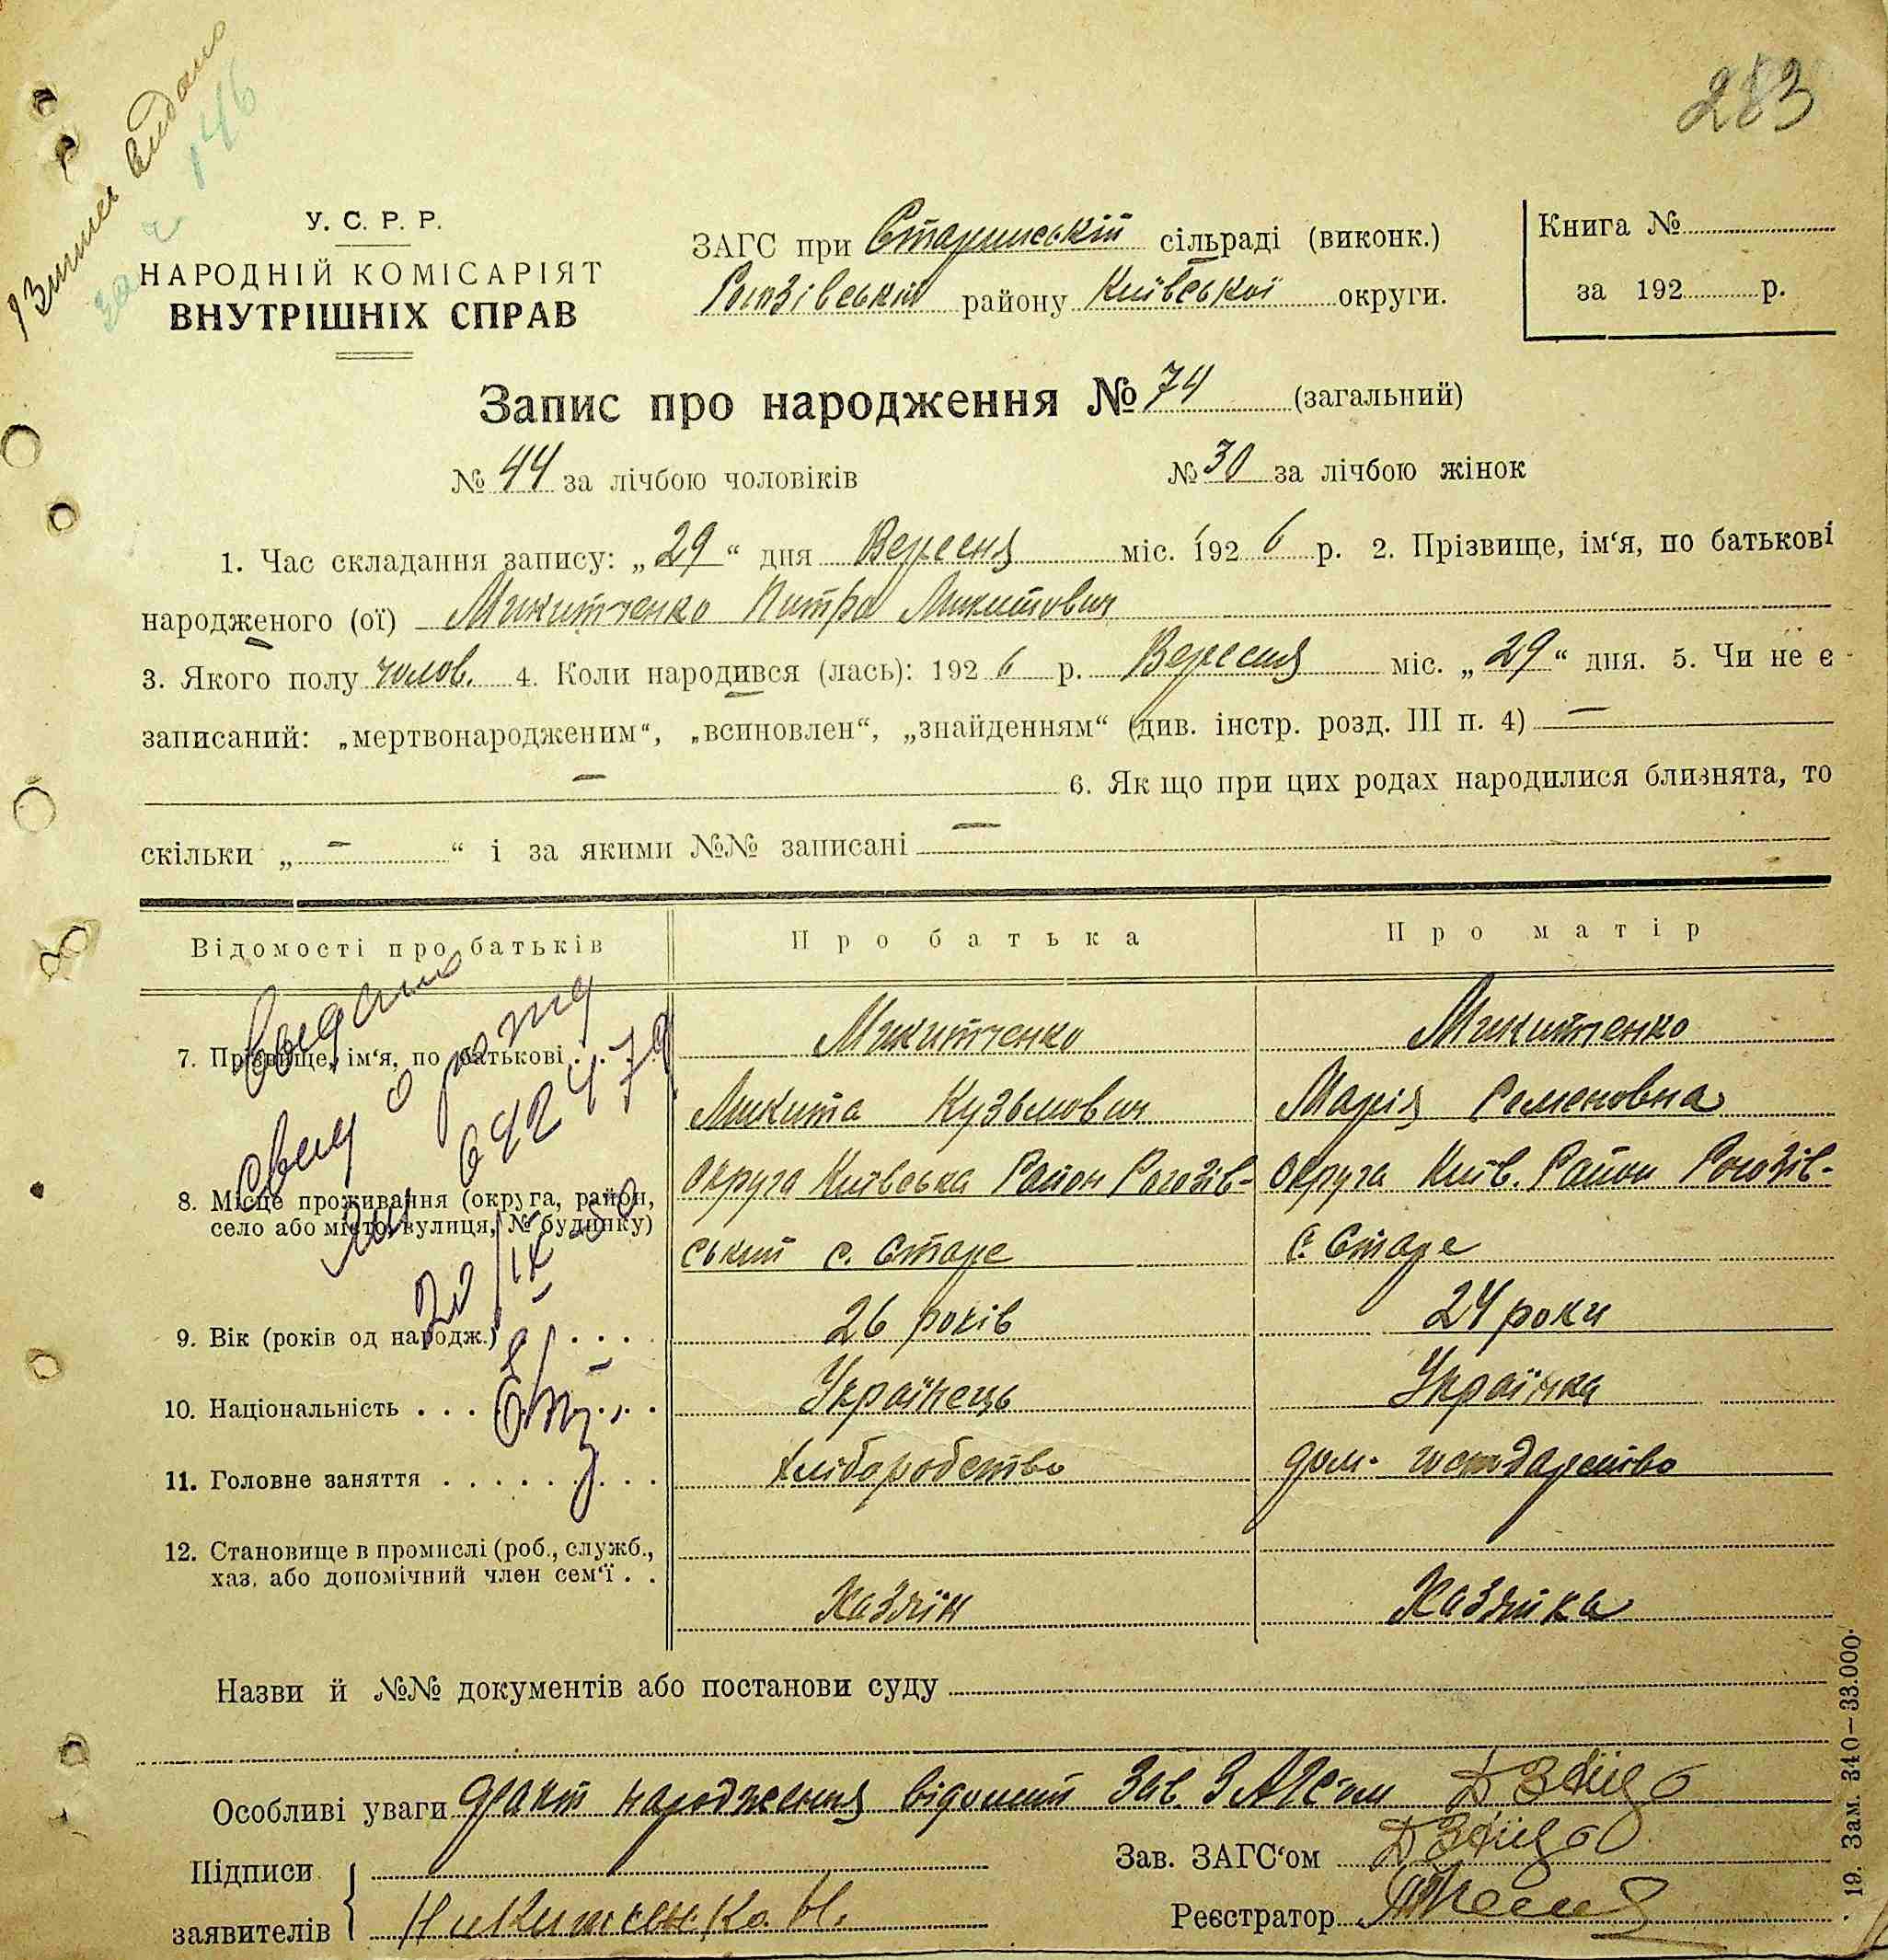 283
Виписъ видано
146
У. С. Р. Р.
НАРОДНІЙ КОМІСАРІЯТ
ВНУТРІШНІХ СПРАВ
ЗАГС при Старинській сільраді (виконк.)
Рогозівський району Київської округи.
Книга №
за 192 р.
Запис про народження № 74 (загальний)
№ 44 за лічбою чоловіків № 30 за лічбою жінок
1. Час складання запису: „29“ дня Вересня міс. 1926 р. 2. Прізвище, ім‘я, по батькові
народженого (ої) Микитченко Питро Микитович
3. Якого полу чолов. 4. Коли народився (лась): 1926 р. Вересня міс. „29“ дня. 5. Чи не є
записаний: „мертвонародженим“, „всиновлен“, „знайденням“ (див. інстр. розд. III п. 4) —
— 6. Як що при цих родах народилися близнята, то
скільки „ — “ і за якими №№ записані —
Відомості про батьків Про батька Про матір
7. Прізвище, ім‘я, по батькові . . . Микитченко Микитченко
Микита Кузьмович Марія Семеновна
8. Місце проживання (округа, район, Округа Київська Район Рогозів- Округа Київ. Район Рогозів-
село або місто, вулиця, № будинку) ський с. Старе с. Старе
9. Вік (років од народж.) . . . 26 років 24 роки
10. Національність . . . Українець Українка
11. Головне заняття . . . . . . . . Хліборобство дом. господарство
12. Становище в промислі (роб., служб.,
хаз. або допомічний член сем‘ї . . Хазяїн Хазяйка
Видано
свид о рожд
642479
20/IX
Назви й №№ документів або постанови суду
Особливі уваги Факт народження відомий Зав. ЗАГС'ом
Підписи
заявителів Никитченко Н.
Зав. ЗАГС‘ом
Реєстратор
19. Зам. 340—33.000.